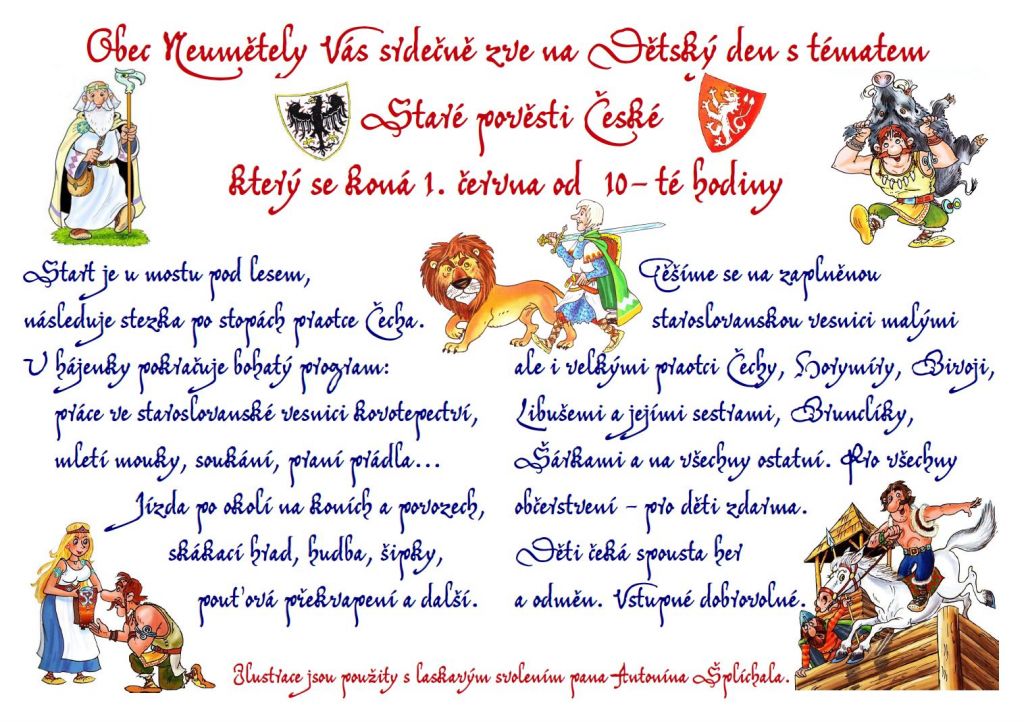 Obec Neumětely Vás srdečně zve na Dětský den s tématem
Staré pověsti České
který se koná 1. června od 10-té hodiny
Start je u mostu pod lesem,
následuje stezka po stopách praotce Čecha.
U hájenky pokračuje bohatý program:
práce ve staroslovanské vesnici kovotepectví,
mletí mouky, soukání, praní prádla...
Jízda po okolí na koních a povozech,
skákací hrad, hudba, šipky,
pouťová překvapení a další.
Těšíme se na zaplněnou
staroslovanskou vesnici malými
ale i velkými praotci Čechy, Horymíry, Bivoji,
Libušemi a jejími sestrami, Brunclíky,
Šárkami a na všechny ostatní. Pro všechny
občerstvení - pro děti zdarma.
Děti čeká spousta her
a odměn. Vstupné dobrovolné.
Ilustrace jsou použity s laskavým svolením pana Antonína Šplíchala.